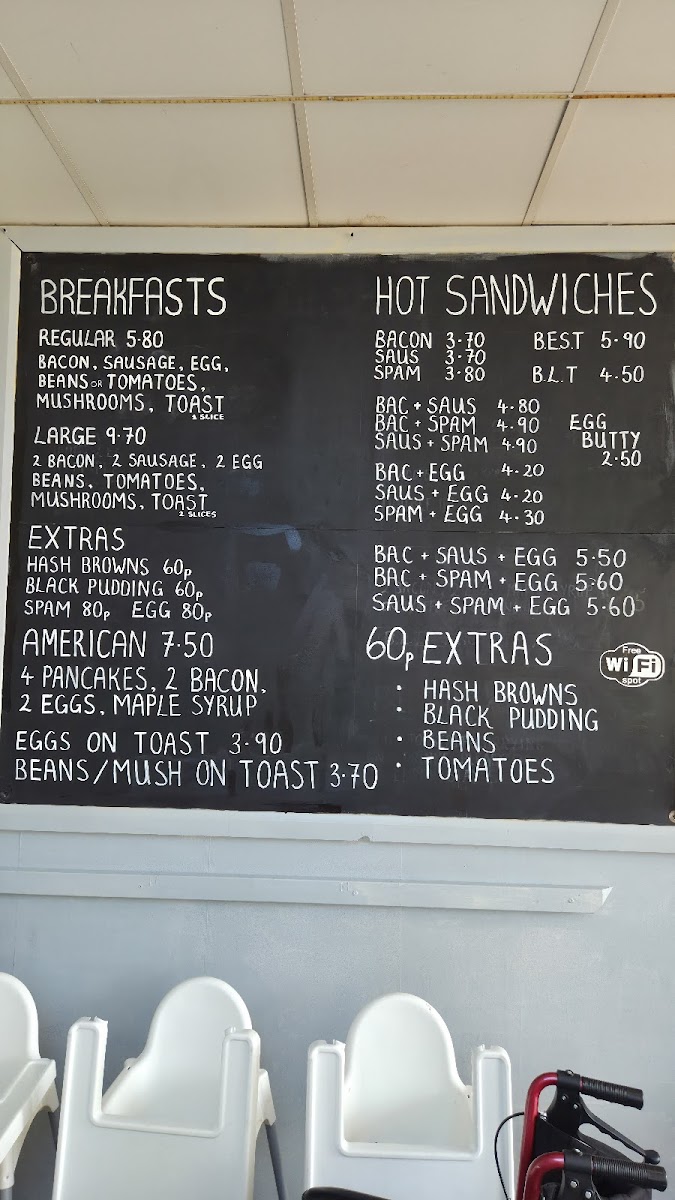 BREAKFASTS
REGULAR 5·80
BACON, SAUSAGE, EGG,
BEANS OR TOMATOES,
MUSHROOMS, TOAST
1 SLICE
LARGE 9·70
2 BACON, 2 SAUSAGE, 2 EGG
BEANS, TOMATOES,
MUSHROOMS, TOAST
2 SLICES
EXTRAS
HASH BROWNS 60p
BLACK PUDDING 60p
SPAM 80p EGG 80p
AMERICAN 7·50
4 PANCAKES, 2 BACON,
2 EGGS, MAPLE SYRUP
EGGS ON TOAST 3·90
BEANS/MUSH ON TOAST 3·70
HOT SANDWICHES
BACON 3·70
SAUS 3·70
SPAM 3·80
B.E.S.T 5·90
B.L.T 4·50
BAC + SAUS 4·80
BAC + SPAM 4·90
SAUS + SPAM 4·90
EGG
BUTTY
2·50
BAC + EGG 4·20
SAUS + EGG 4·20
SPAM + EGG 4·30
BAC + SAUS + EGG 5·50
BAC + SPAM + EGG 5·60
SAUS + SPAM + EGG 5·60
60p EXTRAS
· HASH BROWNS
· BLACK PUDDING
· BEANS
· TOMATOES
Free
Wi Fi
spot